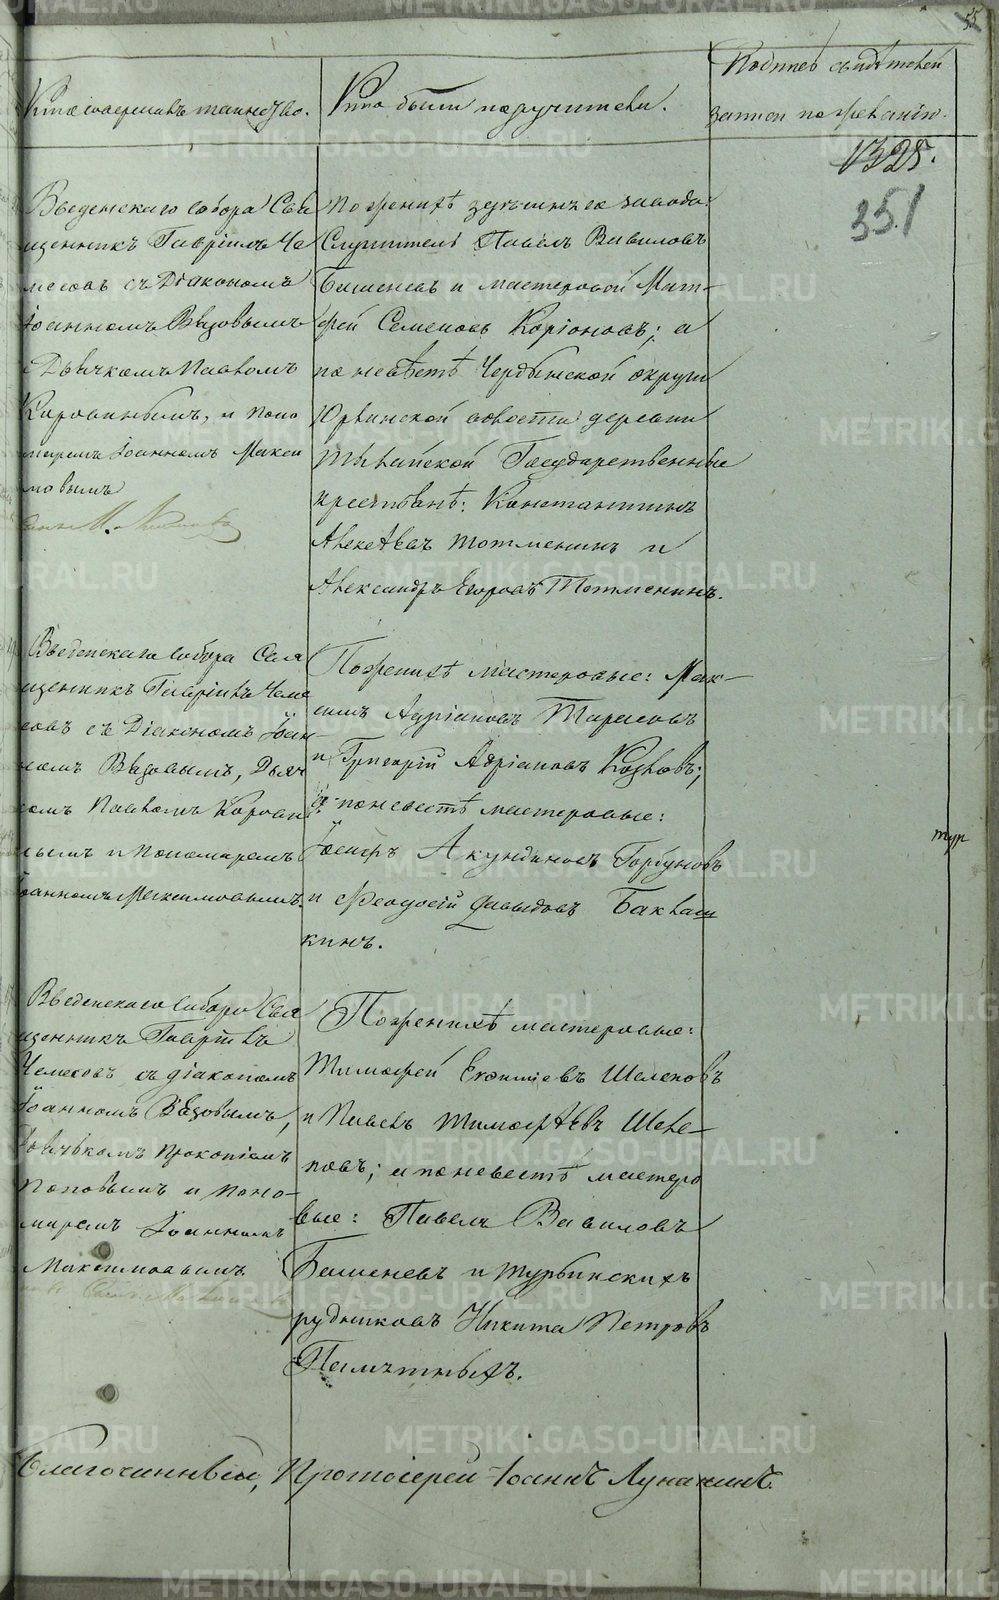 55
Кто совершалъ таинство.
Кто были поручители.
Подпись свидѣтелей
записи по желанію.
1325.
351
Введенскаго собора Свя
щенникъ Гавріилъ Че
месовъ съ Діакономъ
Іоанномъ
Дьячкомъ Павломъ
и поно
маремъ Іоанномъ Макси
мовымъ
По женихѣ здѣшняго завода:
Служитель Павелъ Вавиловъ
и мастеровой Мат-
фей Семеновъ Коріоновъ; а
по невѣстѣ Чердынской округи
волости деревни
Государственные
крестьянѣ: Константинъ
Алексѣевъ Тотменинъ и
Александръ Егоровъ Тотменинъ.
Введенскаго собора Свя
щенникъ Гавріилъ Чеме
совъ съ Діакономъ Іоан
номъ Дьяч
комъ Павломъ
нымъ и Пономаремъ
Іоанномъ Максимовымъ.
По женихѣ мастеровые: Мак-
симъ Адріановъ Тарасовъ
и Григорій Адріановъ Козловъ;
а по невестѣ мастеровые:
Іосифъ Акундиновъ Горбуновъ
и Феодосій Давыдовъ Баклаш
кинъ.
Введенскаго собора Свя
щенникъ Гавріилъ
Чемесовъ съ діакономъ
Іоанномъ
Дьячкомъ Прокопіемъ
Поповымъ и поно-
маремъ Іоанномъ
Максимовымъ
По женихѣ мастеровые:
Тимофей Евфиміевъ Шелеповъ
и Павелъ Тимофѣевъ Шеле-
повъ; а по невестѣ мастеро
вые: Павелъ Вавиловъ
и Турьинскихъ
рудниковъ Никита Петровъ
Памятныхъ.
тур
Благочинный, Протоіерей Іоаннъ Луканинъ.
METRIKI.GASO-URAL.RU